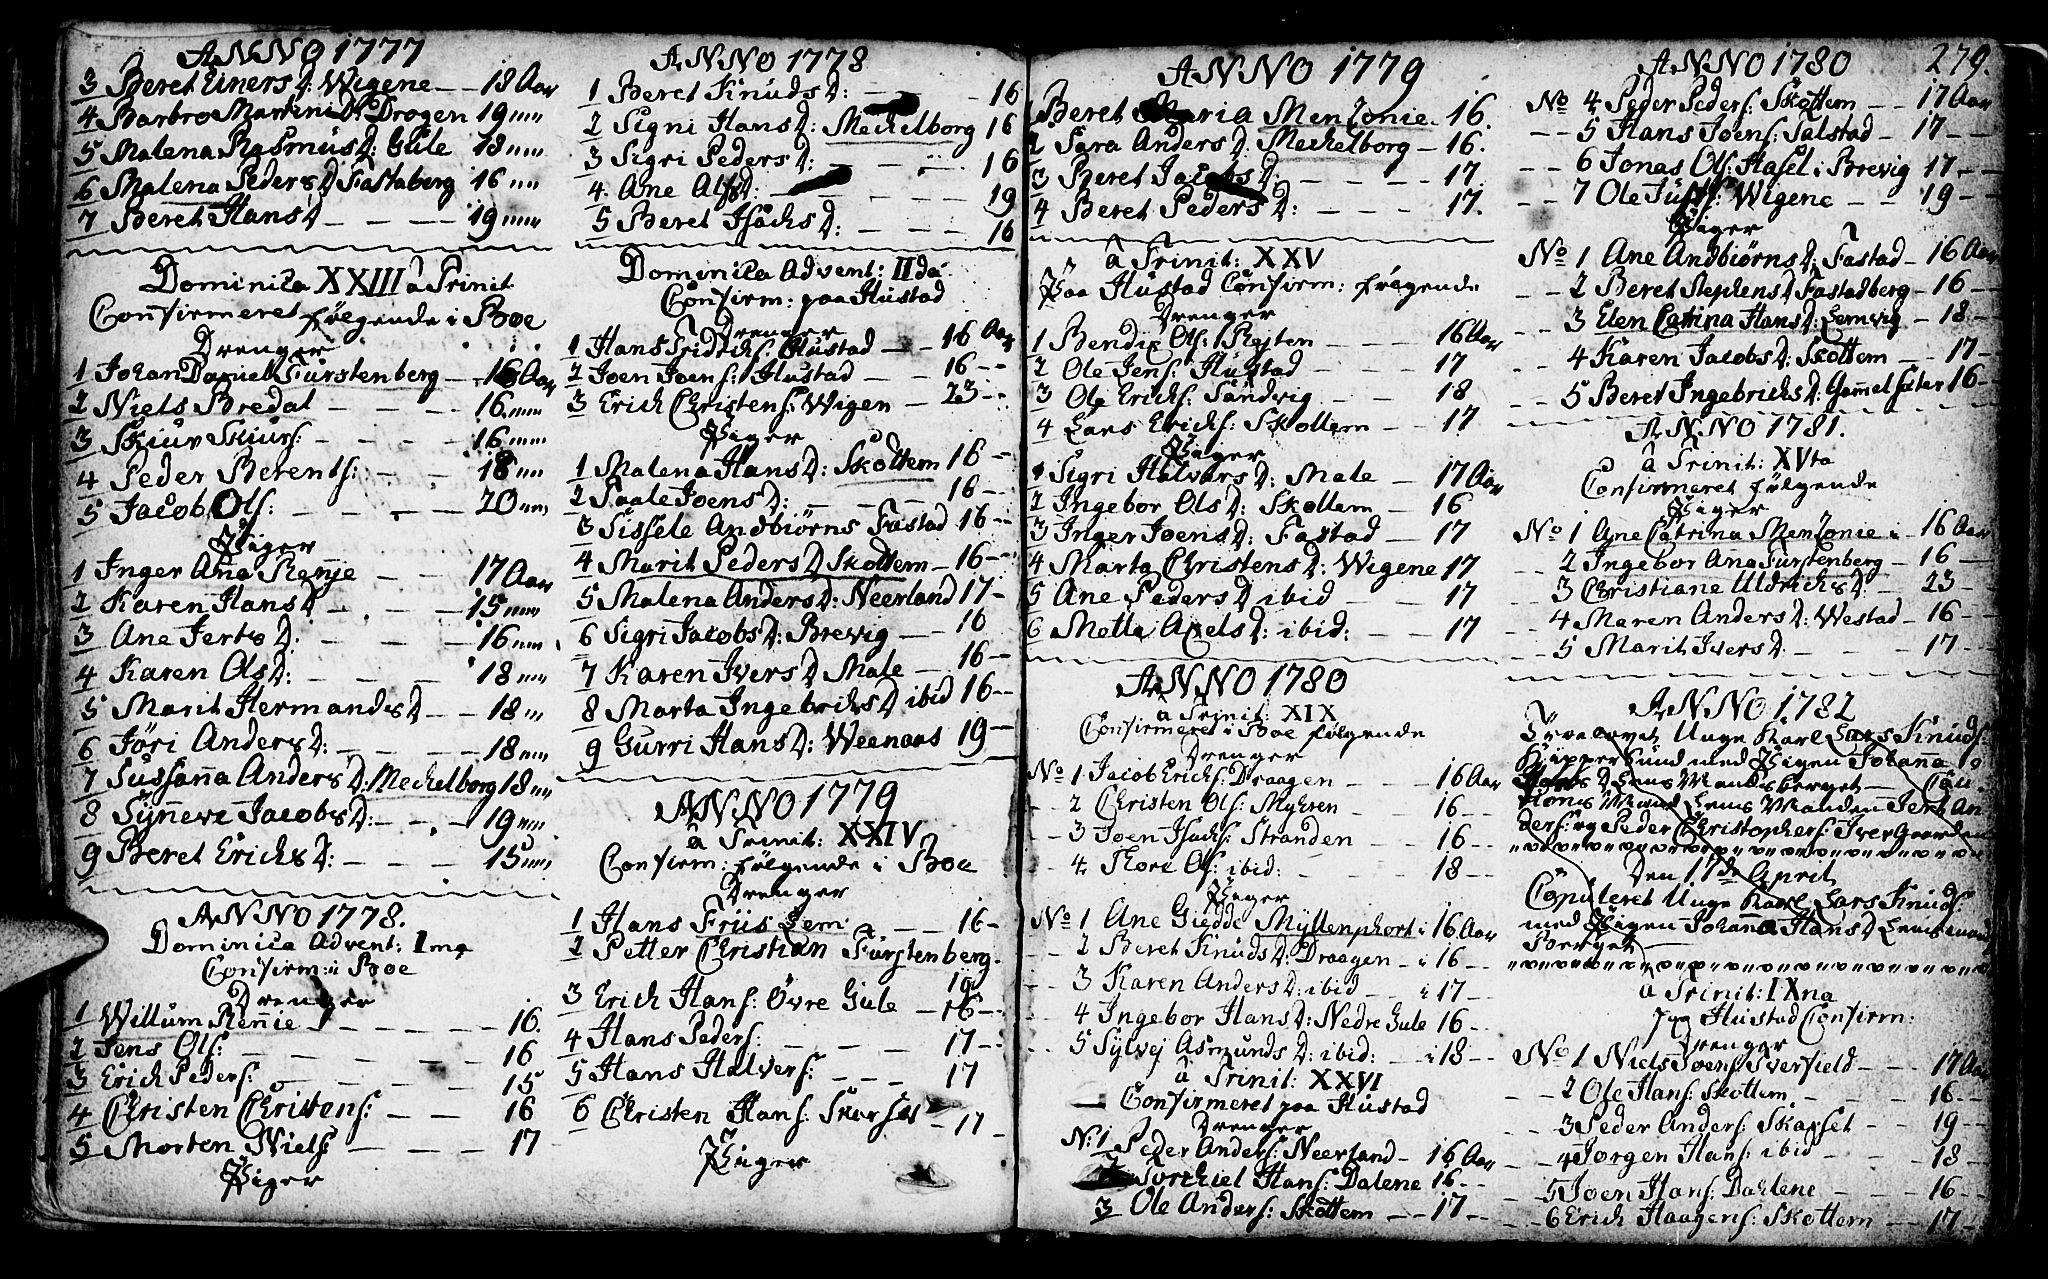 ANNO 1777
3 Beret Einers D: Wigene — — 18 Aar
4 Barbro Martini D: Drogen 19 „„
5 Malena Rasmus D: Gule 18 „„
6 Malena Peders D Fastaberg 16 „„
7 Beret Hans D — — — 19 „„
Dominica XXIII à Trinit
Confirmeret følgende i Boe
Drenger
1 Johan Daniel Furstenberg — 16 Aar
2 Niels Bredal — — — 16 „„
3 Skiur Skiurs: — — — 16 „„
4 Peder Berents: — — — 18 „„
5 Jacob Ols: — — — 20 „„
Piger
1 Inger Ana Renje — — 17 Aar
2 Karen Hans D — — — 15 „„
3 Ane Jerts D: — — — 16 „„
4 Karen Ols D: — — — 18 „„
5 Marit Hermands D — — 18 „„
6 Jöri Anders D: — — — 18 „„
7 Sussana Anders D: Mechelborg 18 „„
8 Synneve Jacobs D: — — 19 „„
9 Beret Erichs D: — — — 15 „„
ANNO 1778.
Dominica Advent: Ima
Confirm: i Boe
Drenger
1 Willum Rennie — — — 16.
2 Jens Ols: — — — 16
3 Erich Peders: — — — 15
4 Christen Christens: — — 16
5 Morten Niels — — — 17
Piger
ANNO 1778
1 Beret Knuds D: — — — 16
2 Signi Hans D: Mechelborg 16
3 Sigri Peders D: — — — 16
4. Ane Ols D: — — — 19
5 Beret Isachs D: — — — 16
Dominica Advent: IIda
Confirm: paa Hustad
Drenger
1 Hans Fridrichs: Hustad — 16 Aar
2 Joen Joens: Hustad — — 16 --
3 Erich Christens: Wigen — 23 --
Piger
1 Malena Hans D: Skottem 16 --
2 Paale Joens D: — — 16 --
3 Sissele Andbiörns Fastad 16 --
4 Marit Peders D Skottem — 16 --
5 Malena Anders D: Neerland 17 -
6 Sigri Jacobs D: Brevig — — 16
7 Karen Ivers D Male — 16 --
8 Marta Ingebrichs D ibid 16 --
9 Gurri Hans D: Weenaas 19 --
ANNO 1779
à Trinit: XXIV
Confirm: følgende i Boe
Drenger
1 Hans Friis Lem — — 16 -
2 Petter Christian Furstenberg.
16
3 Erich Hans: Övre Gule — 16 --
4 Hans Peders: — — — 17 --
5 Hans Halvers: — — — 17
6 Christen Hans: Skarset — 17 -
Piger
ANNO 1779
1 Beret Maria Menzonie. 16.
2 Sara Anders D: Mechelborg — 16.
3 Beret Jacobs D: — — — 17
4 Beret Peders D: — — — 17.
à Trinit: XXV
Paa Hustad Confirm: følgende
Drenger
1 Bendix Ols: Rejten — — 16 Aar
2 Ole Jens: Hustad — — 17
3 Ole Erichs: Sandvig — — 18
4 Lars Erichs: Skottem — — 17
Piger
1 Sigri Halvars D: Male — 17 Aar
2 Ingebor Ols D: Skottem — 16
3 Inger Joens D: Fastad — 17
4 Marta Christens D: Wigene 17
5 Ane Peders D ibid — — 17
6 Mette Axels D: ibid: — — 17
ANNO 1780
à Trinit: XIX
Confirmeret i Boe følgende
Drenger
No 1 Jacob Erichs: Draagen — — 16 Aar
2 Christen Ols: Myhren — 16 --
3 Joen Isachs: Stranden — 16 --
4 Thore Ols: ibid: — — 18 --
Piger
No 1 Ane Giedde Myllenphort i 16 Aar
2 Beret Knuds D: Draagen — i 16 --
3 Karen Anders D: ibid — i 17 --
4 Ingebor Hans D: Nedre Gule 16 --
5 Sylvej Asmunds D: ibid: — i 18 --
à Trinit: XXVI
Confirmeret paa Hustad
Drenger
N: 1 Peder Anders: Neerland — 16 Aar
Torchiel Hans: Dalene 16 --
3 Ole Anders: Skottem — — 17 --
ANNO 1780 279.
No 4 Peder Peders: Skottem — — 17 Aar
5 Hans Joens: Talstad — 17 --
6 Jonas Ols: Hasel i Brevig 17 --
7 Ole Justs: Wigene — — 19 --
Piger
No 1 Ane Andbiørns D: Fastad — 16 Aar
2 Beret Stephens D Fastadberg — 16 --
3 Elen Catrina Hans D: Lemvig — 18 --
4 Karen Jacobs D: Skottem — — 17 --
5 Beret Ingebrichs D: Gammelsæter 16 --
ANNO 1781.
à Trinit: XVta
Confirmeret følgende
Piger
No 1 Ane Catrina Menzonie i — 16 Aar
2 Ingebor Ana Furstenberg — 16 —
3 Christiane Uldrichs D: — 23 --
4 Maren Anders D: Westad — 16 --
5 Marit Ivers D: — — — 17 --
ANNO 1782
Trolovet Unge Karl Lars Knuds:
med Pigen Johana
D Lens Mandsberget —
Lens Manden Jert An-
ders: og Peder Christophers: Iver Gaarden
Den 17de April
Copuleret Unge Karl Lars Knuds
med Pigen Johana Hans D Lensmand
Berget —
à Trinit: IXna
paa Hustad Confirm:
Drenger
No 1 Niels Joens Sverfield — 17 Aar
2 Ole Hans: Skottem. — — 16 --
3 Peder Anders: Skarset — 19 --
4 Jörgen Hans: ibid — — 18 --
5 Joen Hans: Dahlene — — 16 --
6 Erich Haagens: Skottem — — 17 --